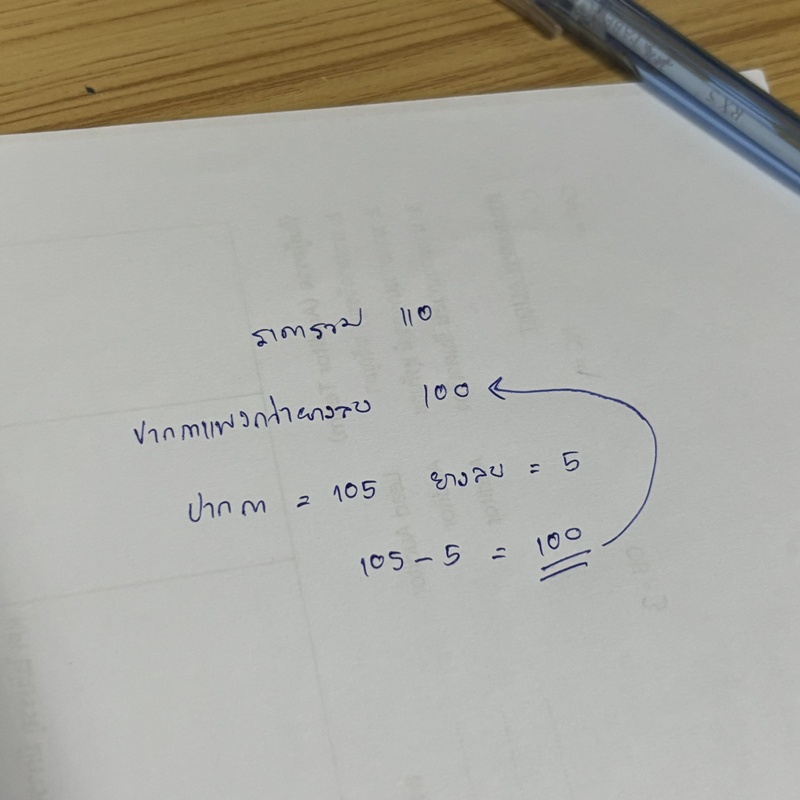 ราคารวม 110
ปากกาแพงกว่ายางลบ 100
ปากกา = 105 ยางลบ = 5
105 - 5 = 100